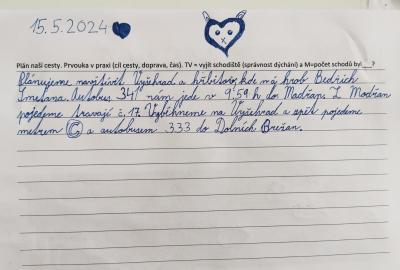 15.5.2024
Plán naší cesty. Prvouka v praxi (cíl cesty, doprava, čas). TV = vyjít schodiště (správnost dýchání) a M=počet schodů byl___?
Plánujeme navštívit Vyšehrad a hřbitov, kde má hrob Bedřich
Smetana. Autobus 341 nám jede v 9:59 h do Madřan. Z Modřan
pojedeme travají č. 17. Vyběhneme na Vyšehrad a zpět pojedeme
metrem C a autobusem 333 do Dolních Břežan.